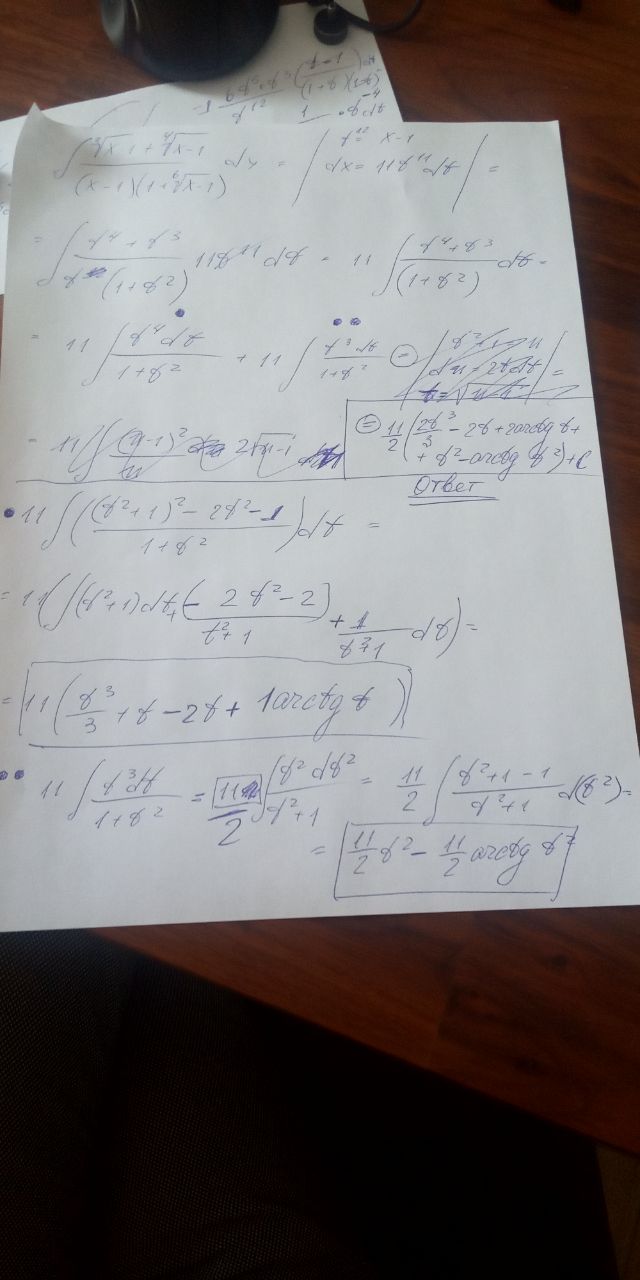 ∫ (∛(x-1) + ∜(x-1)) / ((x-1)(1+⁶√(x-1))) dx = | t¹² = x-1
dx = 11t¹¹dt | =
= ∫ (t⁴ + t³) / (t (1+t²)) 11t¹¹ dt = 11 ∫ (t⁴+t³) / (1+t²) dt =
= 11 ∫ t⁴dt / (1+t²) + 11 ∫ t³dt / (1+t²) =
= 11/2 (2t³/3 - 2t + 2arctg t +
+ t² - arctg t²) + C
Ответ
• 11 ∫ (((t²+1)² - 2t² - 1) / (1+t²)) dt =
= 11 (∫ (t²+1) dt + (- 2t² - 2) / (t²+1) + 1 / (t²+1) dt) =
= 11 (t³/3 + t - 2t + 1arctg t)
•• 11 ∫ t³dt / (1+t²) = 11/2 ∫ t² dt² / (t²+1) = 11/2 ∫ (t²+1-1) / (t²+1) d(t²) =
= 11/2 t² - 11/2 arctg t²